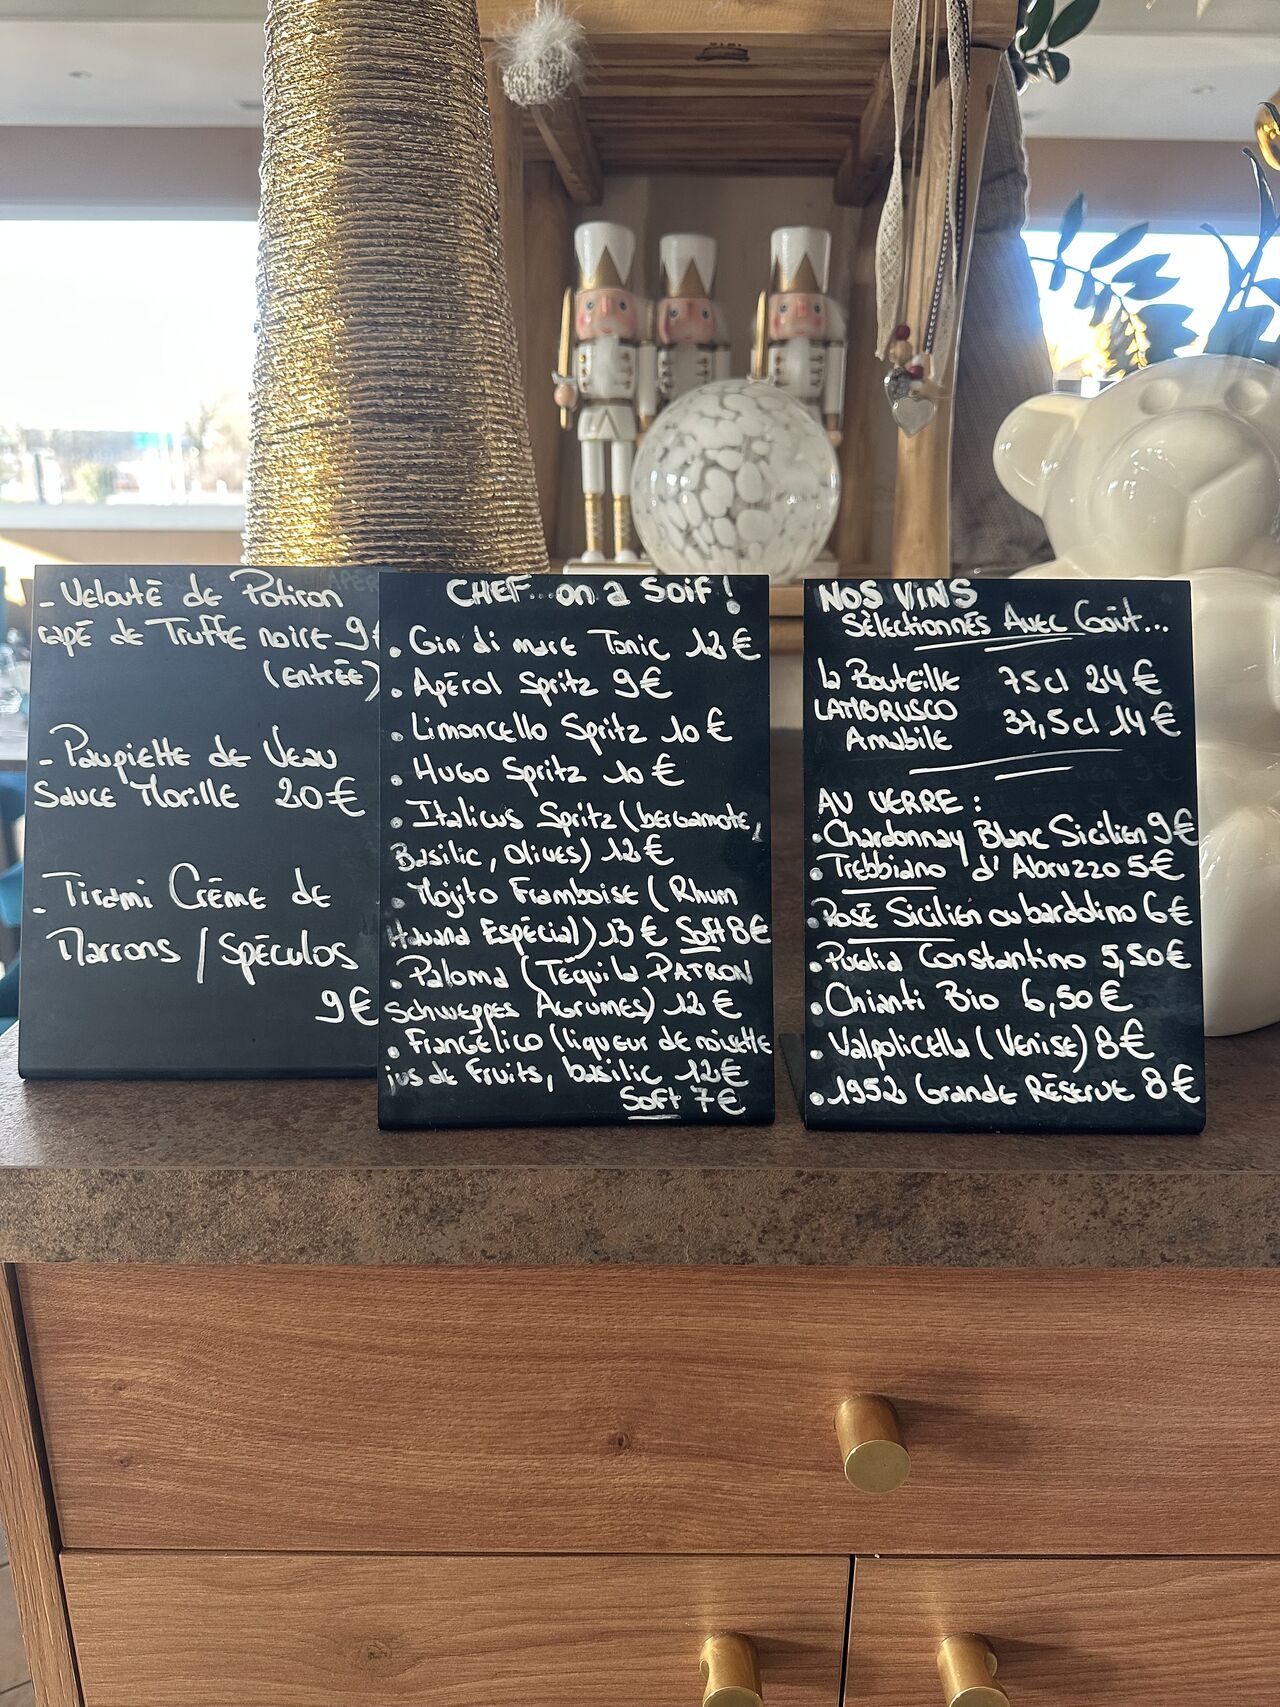 - Velouté de Potiron
capé de Truffe noire 9€
(entrée)
- Paupiette de Veau
Sauce Morille 20€
- Tirami Crème de
Marrons / Spéculos
9€
CHEF...on a Soif !
• Gin di mare Tonic 12€
• Apérol Spritz 9€
• Limoncello Spritz 10€
• Hugo Spritz 10€
• Italicus Spritz (bergamote,
Basilic, Olives) 12€
• Mojito Framboise (Rhum
Havana Espécial) 13€ Soft 8€
• Paloma (Téquila PATRON
Schweppes Agrumes) 12€
• Frangélico (liqueur de noisette
jus de Fruits, basilic 12€
Soft 7€
NOS VINS
Sélectionnés Avec Goût...
la Bouteille 75cl 24€
LAMBRUSCO 37,5cl 14€
Amabile
AU VERRE :
• Chardonnay Blanc Sicilien 9€
• Trebbiano d'Abruzzo 5€
• Rosé Sicilien ou bardolino 6€
• Puglia Constantino 5,50€
• Chianti Bio 6,50€
• Valpolicella (Venise) 8€
• 1952 Grande Réserve 8€